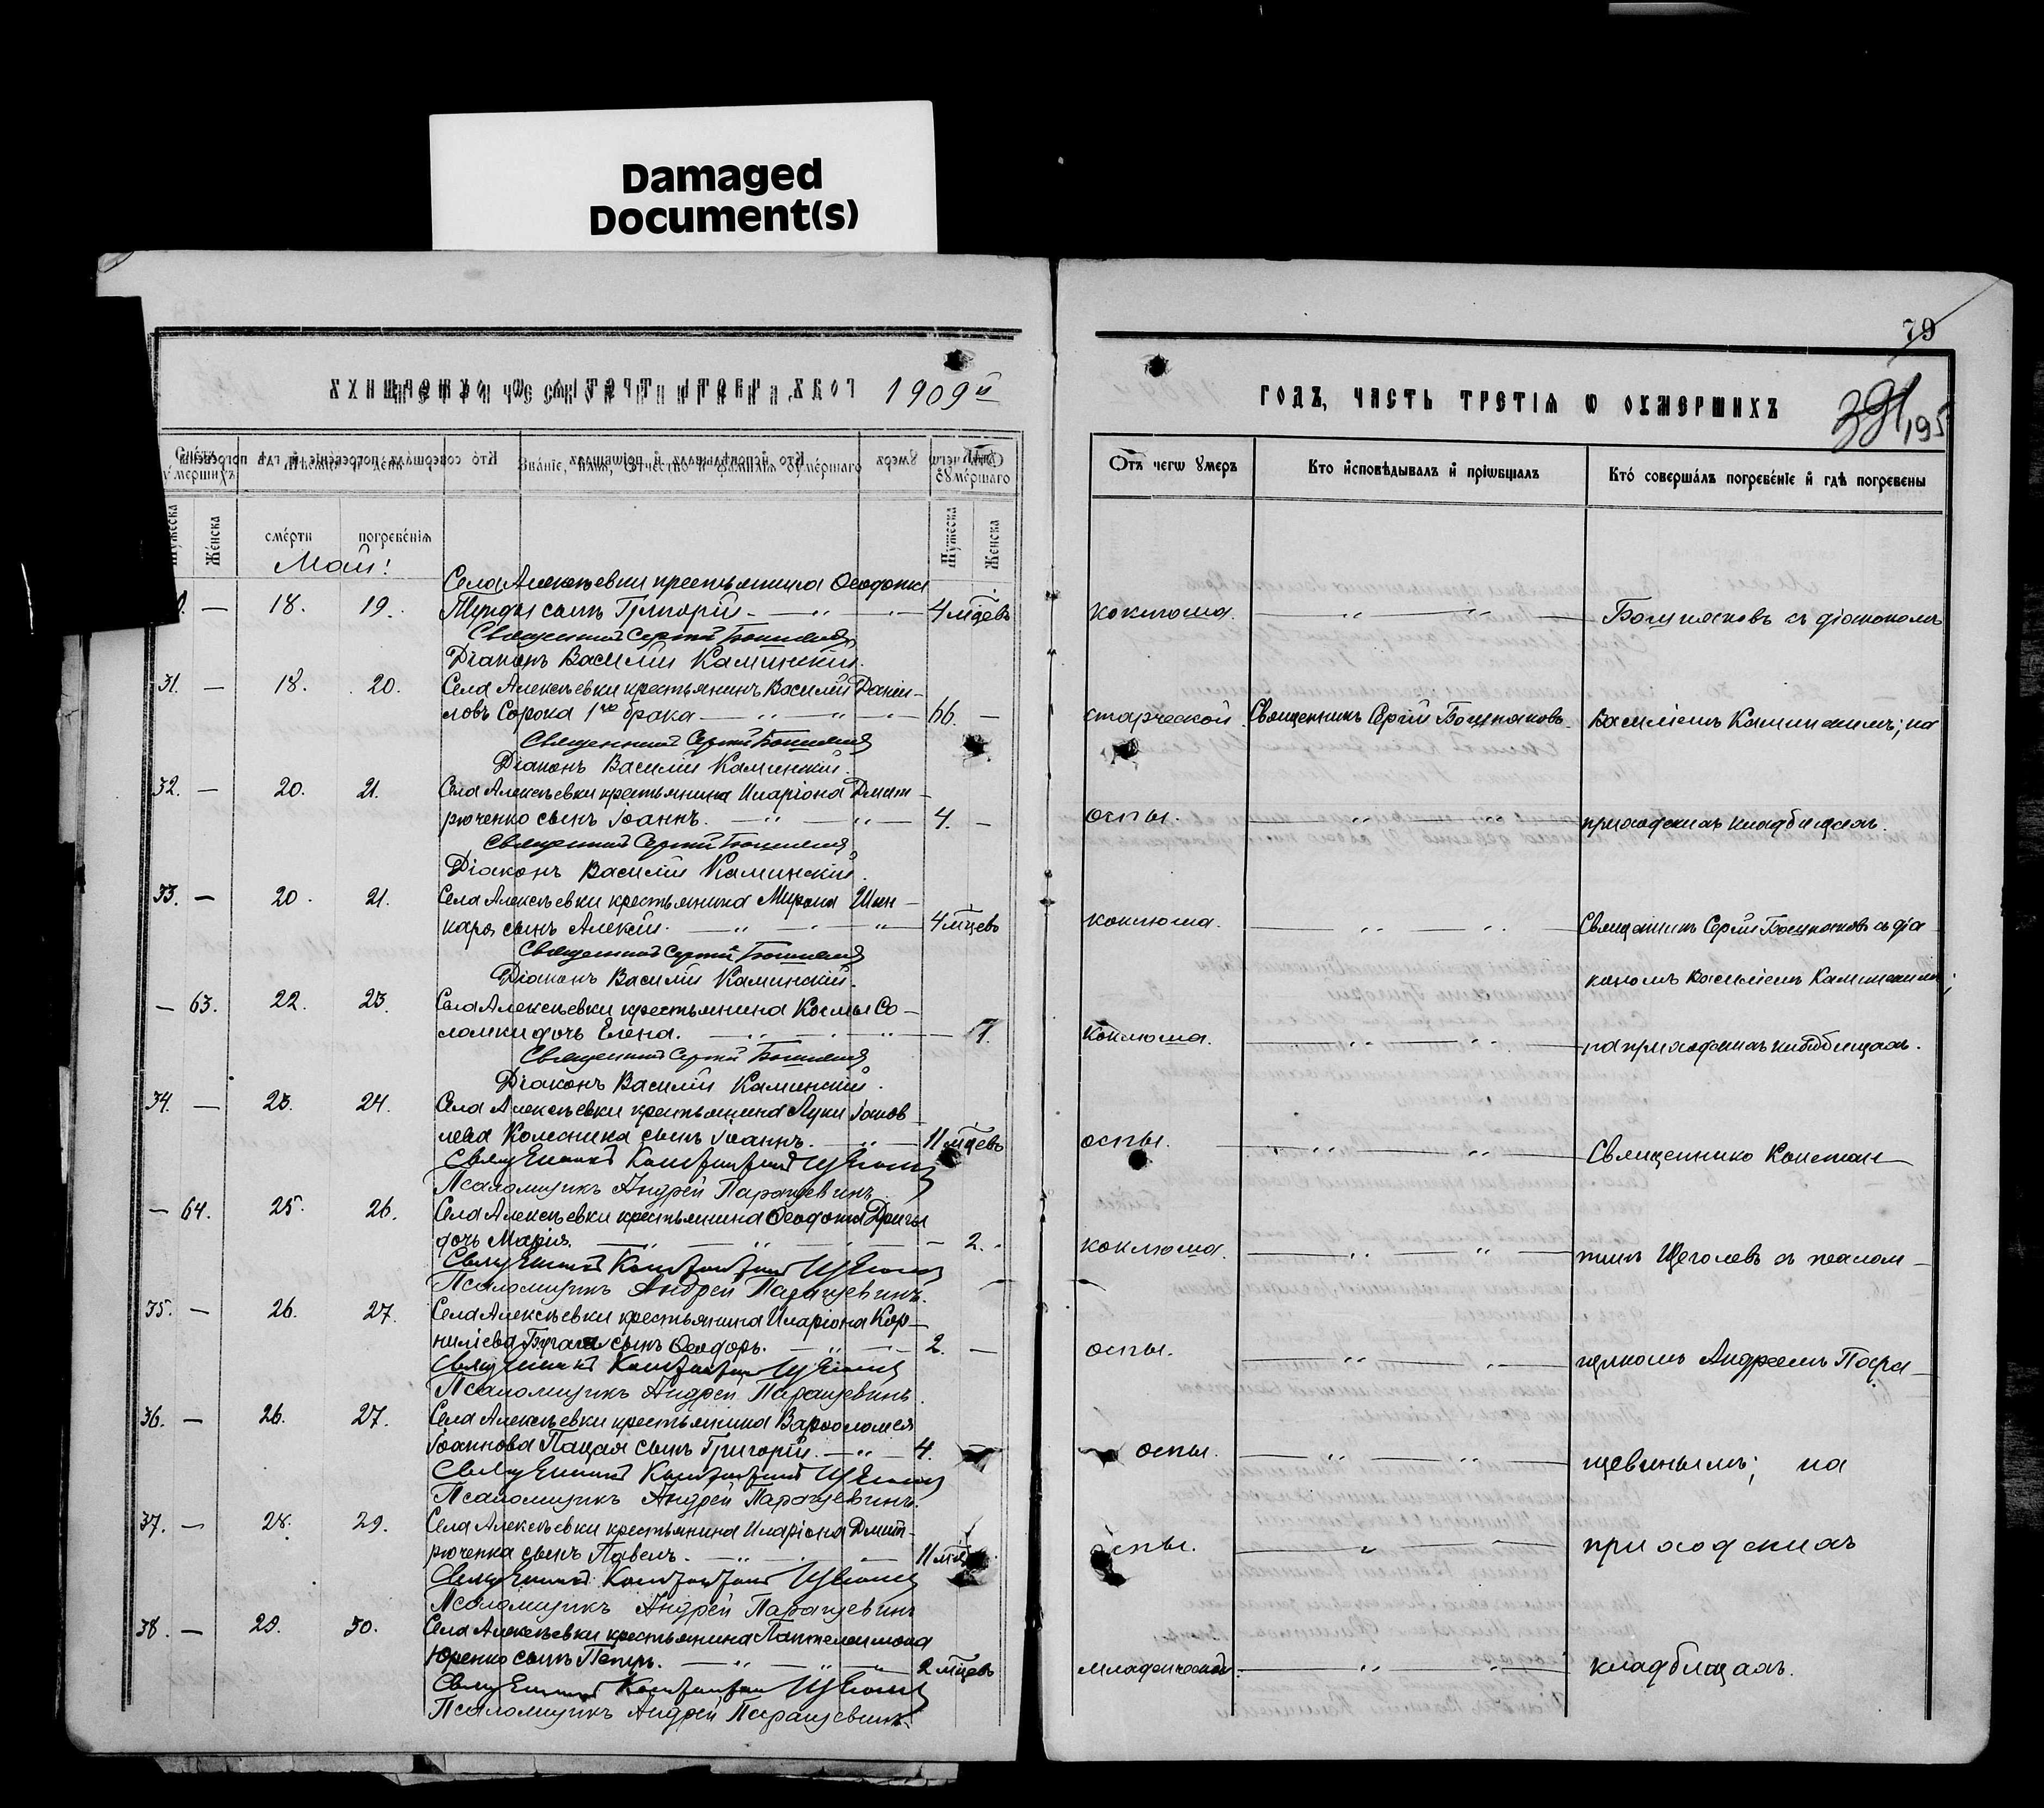 Damaged
Document(s)
1909й
Мужеска
Женска
смерти
погребенія
Званіе, имя, отчество и фамилія умершаго
Мужеска
Женска
Май!
Села Алексѣевки крестьянина Ѳеодота
— 18. 19. сынъ Григорій 4 мцевъ
Священникъ Сергій
Діаконъ Василій Каминскій.
31. — 18. 20. Села Алексѣевки крестьянинъ Василій Даніи-
ловъ Сорока 1го брака 66. —
Священникъ Сергій
Діаконъ Василій Каминскій.
32. — 20. 21. Села Алексѣевки крестьянина Иларіона Дмит-
рюченко сынъ Іоаннъ. 4. —
Священникъ Сергій
Діаконъ Василій Каминскій.
33. — 20. 21. Села Алексѣевки крестьянина Мирона Шин-
кара сынъ Алексій. 4 мцевъ
Священникъ Сергій
Діаконъ Василій Каминскій.
— 63. 22. 23. Села Алексѣевки крестьянина Космы Со-
ломки дочь Елена.
Священникъ Сергій
Діаконъ Василій Каминскій.
34. — 23. 24. Села Алексѣевки крестьянина Луки Іаков
лева Колесника сынъ Іоаннъ. 11 мцевъ
Священникъ Константинъ Щеголевъ
Псаломщикъ Андрей Паращевинъ
— 64. 25. 26. Села Алексѣевки крестьянина Ѳеодота Дриги
дочь Марія. 2.
Священникъ Константинъ Щеголевъ
Псаломщикъ Андрей Паращевинъ.
35. — 26. 27. Села Алексѣевки крестьянина Иларіона Кор-
нилієва сынъ Ѳеодоръ. 2. —
Священникъ Константинъ Щеголевъ
Псаломщикъ Андрей Паращевинъ.
36. — 26. 27. Села Алексѣевки крестьянина Варѳоломея
Іоаннова Пацая сынъ Григорій. 4. —
Священникъ Константинъ Щеголевъ
Псаломщикъ Андрей Паращевинъ.
37. — 28. 29. Села Алексѣевки крестьянина Иларіона Дмит-
рюченка сынъ Павелъ. 11
Священникъ Константинъ Щеголевъ
Псаломщикъ Андрей Паращевинъ
38. — 29. 30. Села Алексѣевки крестьянина Пантелеимона
Юренко сынъ Петръ. 2 мцевъ
Священникъ Константинъ Щеголевъ
Псаломщикъ Андрей Паращевинъ.
79
годъ, часть третія ѡ оумершихъ
195
Отъ чегѡ умеръ
Кто исповѣдывалъ и пріѡбщалъ
Кто совершалъ погребеніе и гдѣ погребены
коклюша. съ діакономъ
старческой. Священникъ Сергій Василіемъ Каминскимъ; на
оспы. приходскихъ кладбищахъ.
коклюша. Священникъ Сергій съ діа
кономъ Василіемъ Каминскимъ;
коклюша. на приходскихъ кладбищахъ.
оспы. Священникъ Констан
коклюша. тинъ Щеголевъ съ псалом-
оспы. щикомъ Андреемъ Пара-
оспы. щевинымъ; на
оспы. приходскихъ
младенческой. кладбищахъ.